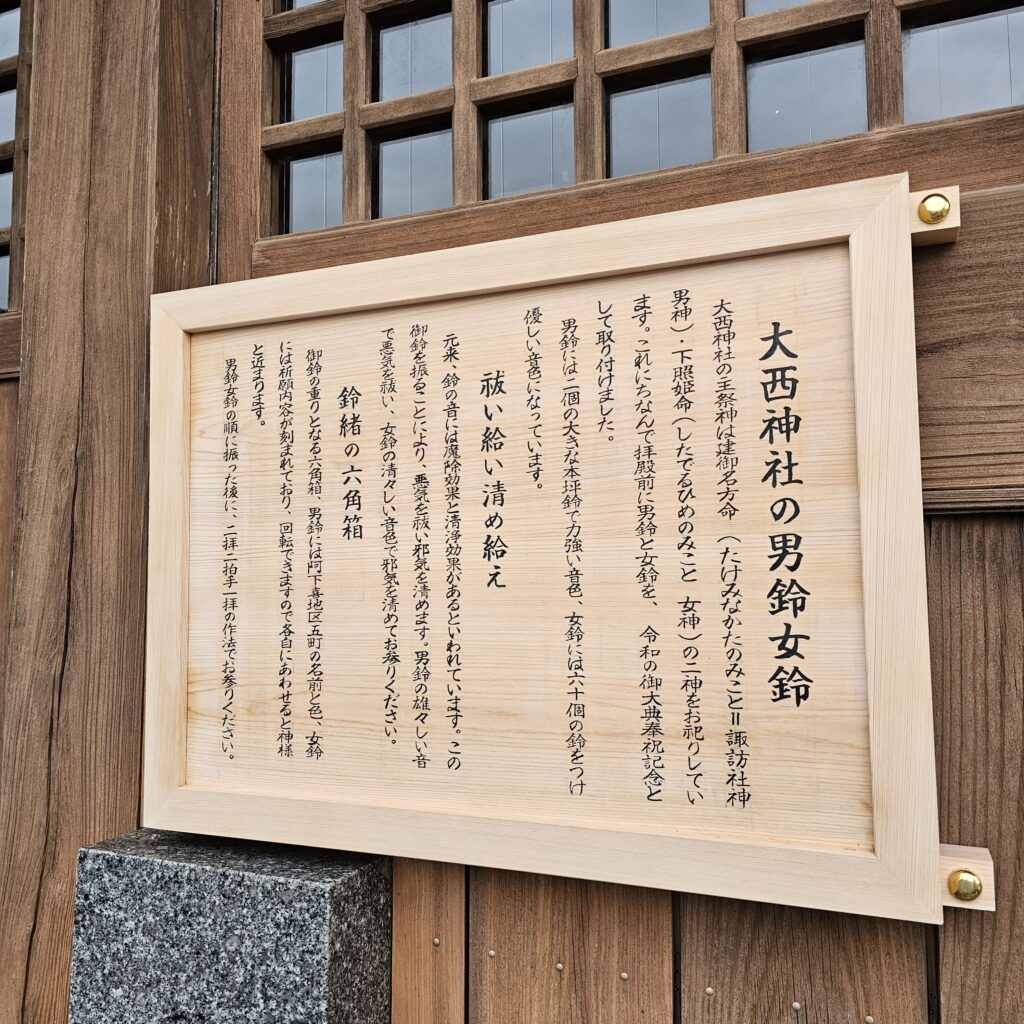 大西神社の男鈴女鈴
大西神社の主祭神は建御名方命（たけみなかたのみこと＝諏訪社神
男神）・下照姫命（したでるひめのみこと　女神）の二神をお祀りしてい
ます。これにちなんで拝殿前に男鈴と女鈴を、令和の御大典奉祝記念と
して取り付けました。
男鈴には二個の大きな本坪鈴で力強い音色、女鈴には六十個の鈴をつけ
優しい音色になっています。
祓い給い清め給え
元来、鈴の音には魔除効果と清浄効果があるといわれています。この
御鈴を振ることにより、悪気を祓い邪気を清めます。男鈴の雄々しい音
で悪気を祓い、女鈴の清々しい音色で邪気を清めてお参りください。
鈴緒の六角箱
御鈴の重りとなる六角箱、男鈴には阿下喜地区五町の名前と色、女鈴
には祈願内容が刻まれており、回転できますので各自にあわせると神様
と近まります。
男鈴女鈴の順に振った後に、二拝二拍手一拝の作法でお参りください。